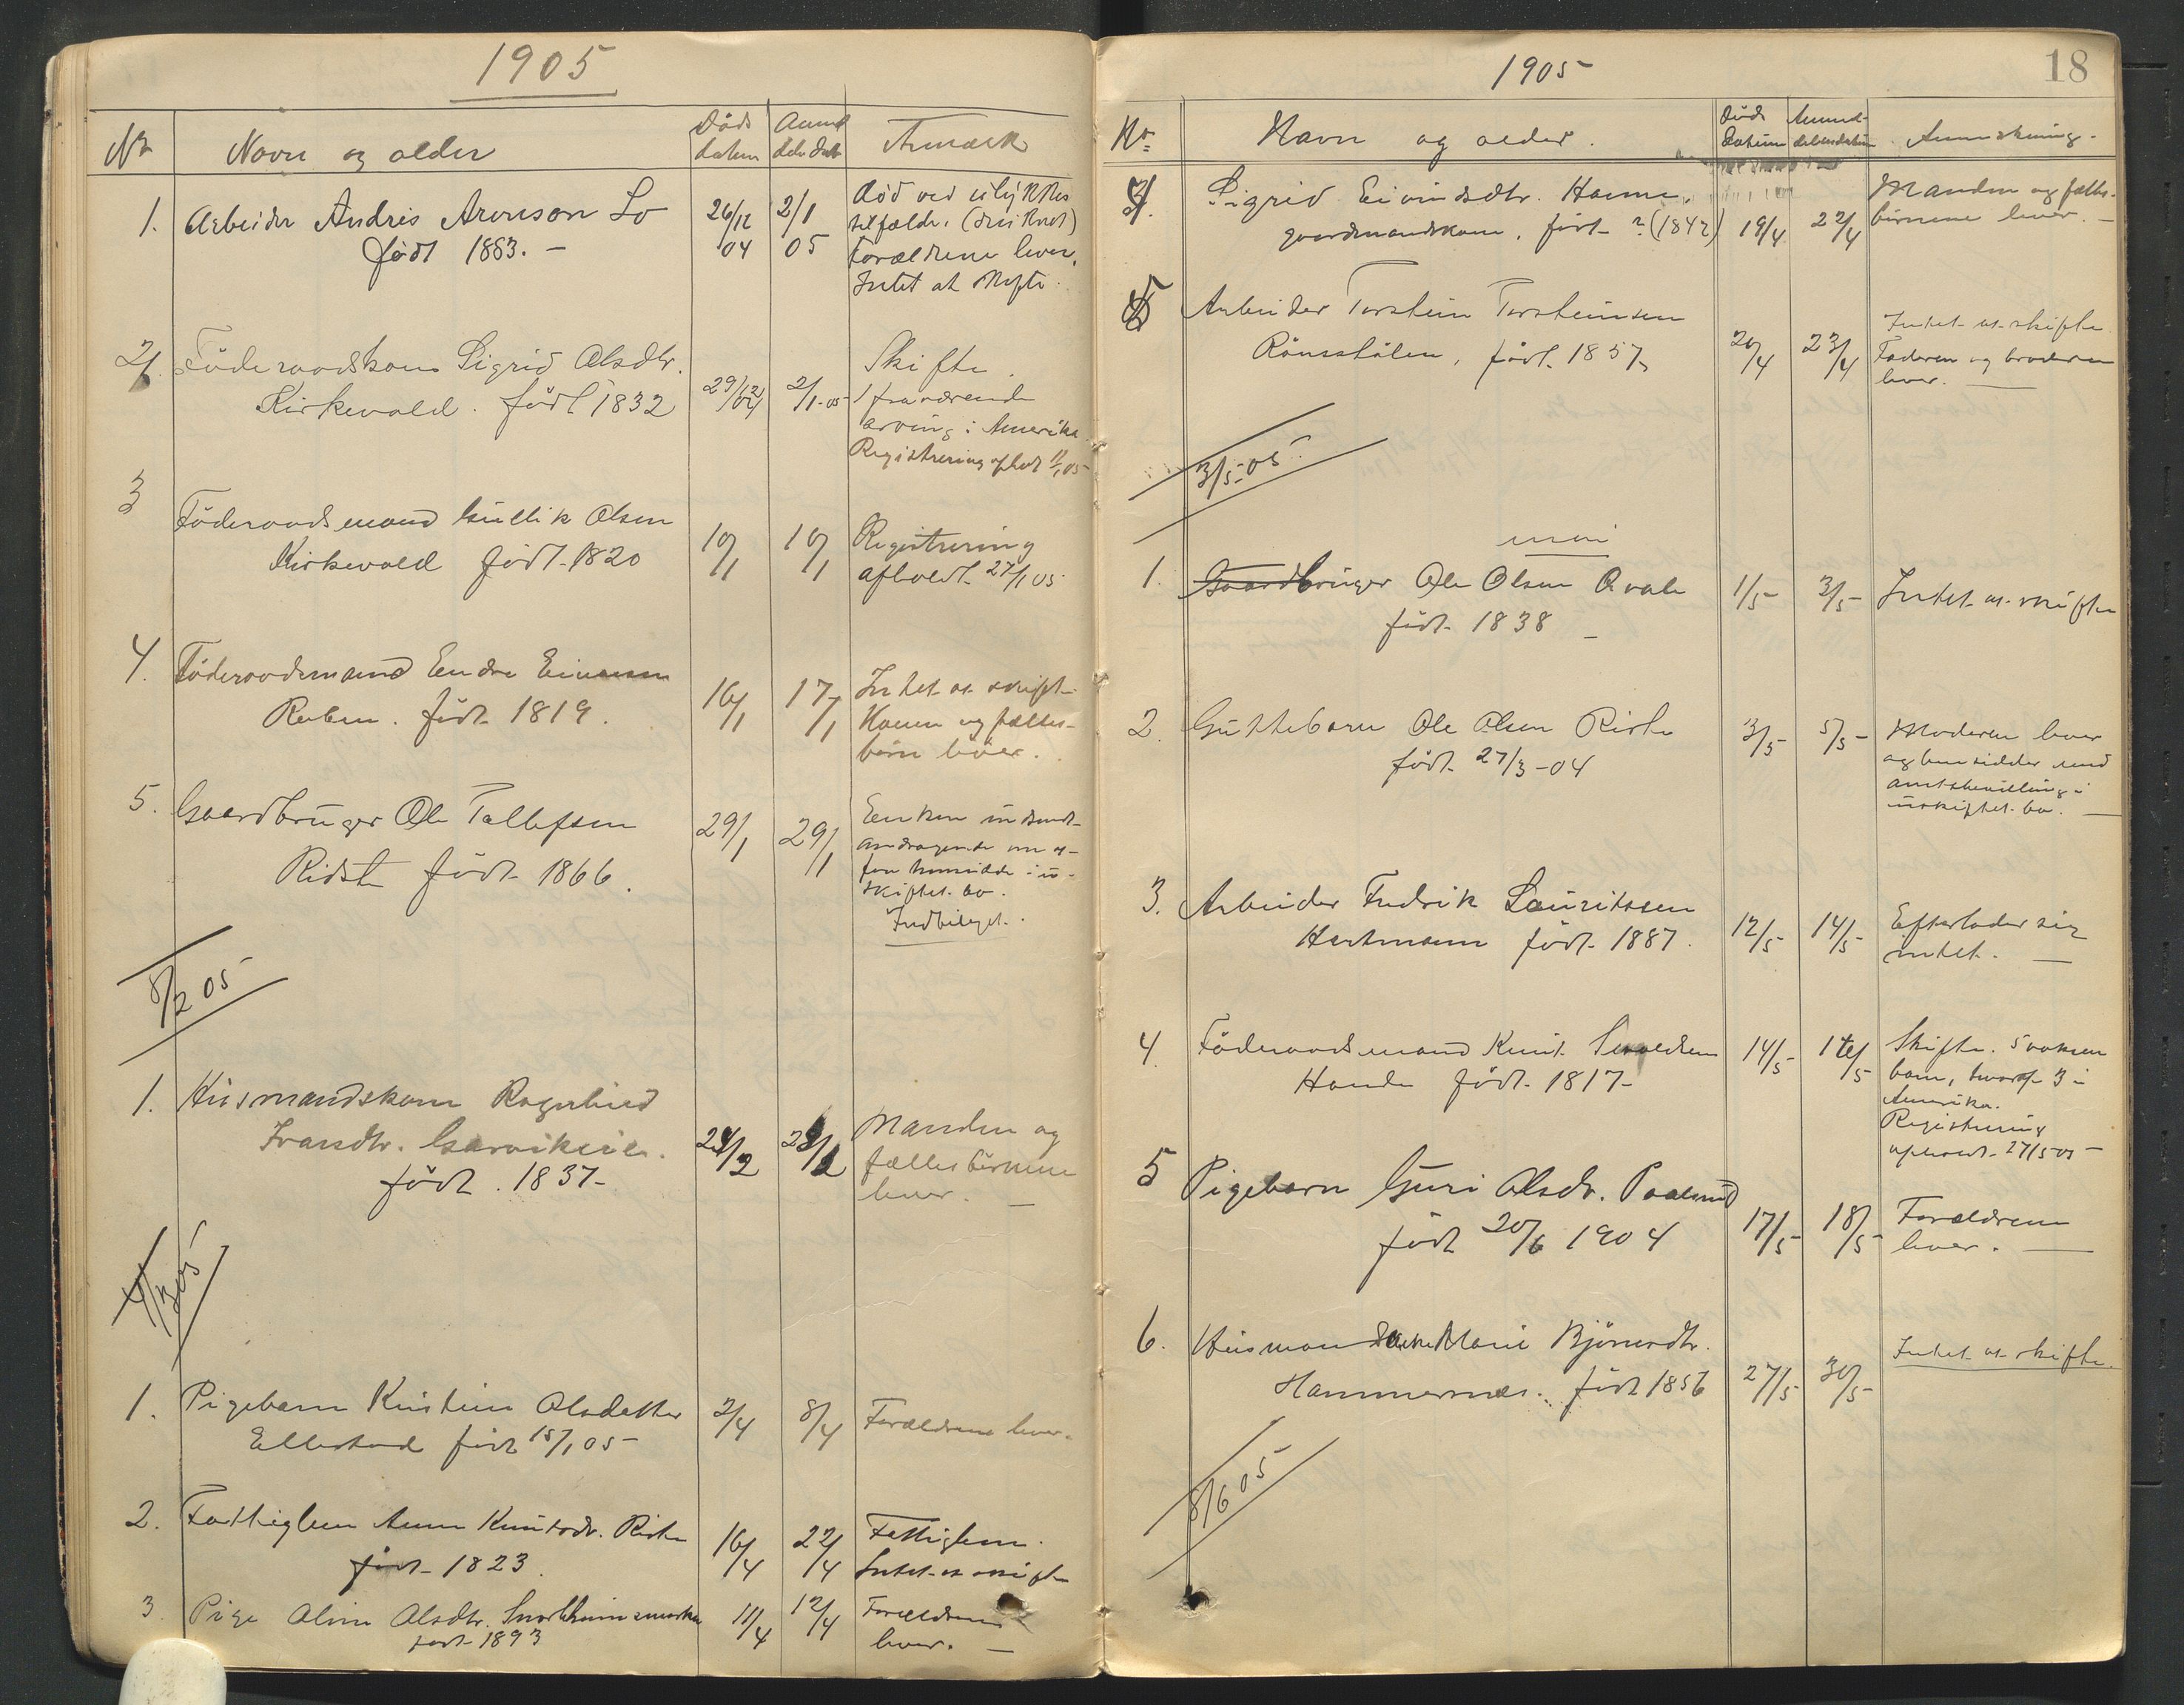 1905
No
Navn og alder
Døds datum
Anmeldelsesdat
Anmærk
1. Arbeider Andris Aronson Lo
født 1883. -
26/12 04
2/1 05
død ved ulykkes
tilfælde. (druknet)
Forældrene lever.
Intet at skifte.
2. Föderaadskone Sigrid Olsdtr.
Kirkevold. født 1832
29/12 04
2/1-05
Skifte.
1 fraværende
arving i Amerika.
Registrering afholdt 11/1 05
3 Föderaadsmand Gullik Olsen
Kirkevold født 1820
10/1
10/1
Registrering
afholdt 27/1 05
4. Föderaadsmand Endre
født 1819.
16/1
17/1
Intet at skift-
Konen og fælles-
børn lever.
5. Gaardbruger Ole Tollefsen
Ridste født 1866.
29/1
29/1
Enken indsendt
andragende om at
faa hensidde i u-
skiftet bo.
Indvilget.
8/2 05
1. Husmandskone Ragnhild
Ivarsdtr.
født. 1837-
24/2
Manden og
fællesbørnene
lever. -
4/3 05
1. Pigebarn Kristine Olsdatter
Ellestad født 15/1 05-
2/4
8/4
Forældrene lever.
2. Fattiglem Anne Knutsdr. Riste
født 1823.
16/4
22/4
Fattiglem.
Intet at skifte
3 Pige Oline Olsdtr.
født 1893
11/4
12/4
Forældrene
lever. -
1905
18
No.
Navn og alder.
Døds Datum
Anmeldelsesdatum
Anmerkning.
Sigrid Eivindsdtr. Hamre,
gaardmandskone, født ? (1842)
19/4
22/4
Manden og fælles-
børnene lever. -
5 Arbeider Torstein Torsteinsen
Rånsstölen, født 1857
20/4
23/4
Intet at skifte
Faderen og broderen
lever.
3/5-05
mai
1. Gaardbruger Ole Olsen Qvale
født 1838 -
1/5
3/5
Intet at skifte
2. Guttebarn Ole Olsen Riste
født 27/3-04
3/5
5/5
Moderen lever
og hensidder med
amtsbevilling i
uskiftet bo. -
3. Arbeider Fredrik Lauritssen
Hartmann født 1887.
12/5
14/5
Efterlader sig
intet. -
4. Föderaadsmand Knut
Hande født 1817-
14/5
16/5
Skifte. 5 voksne
barn, hvoraf 3 i
Amerika.
Registrering
afholdt 27/5 05-
5 Pigebarn Guri Olsdr.
født 20/6 1904
17/5
18/5
Forældrene
lever. -
6. Husmandsenke Marie Bjørnsdtr.
Hammernes. født 1856
27/5
30/5
Intet at skifte.
8/6 05